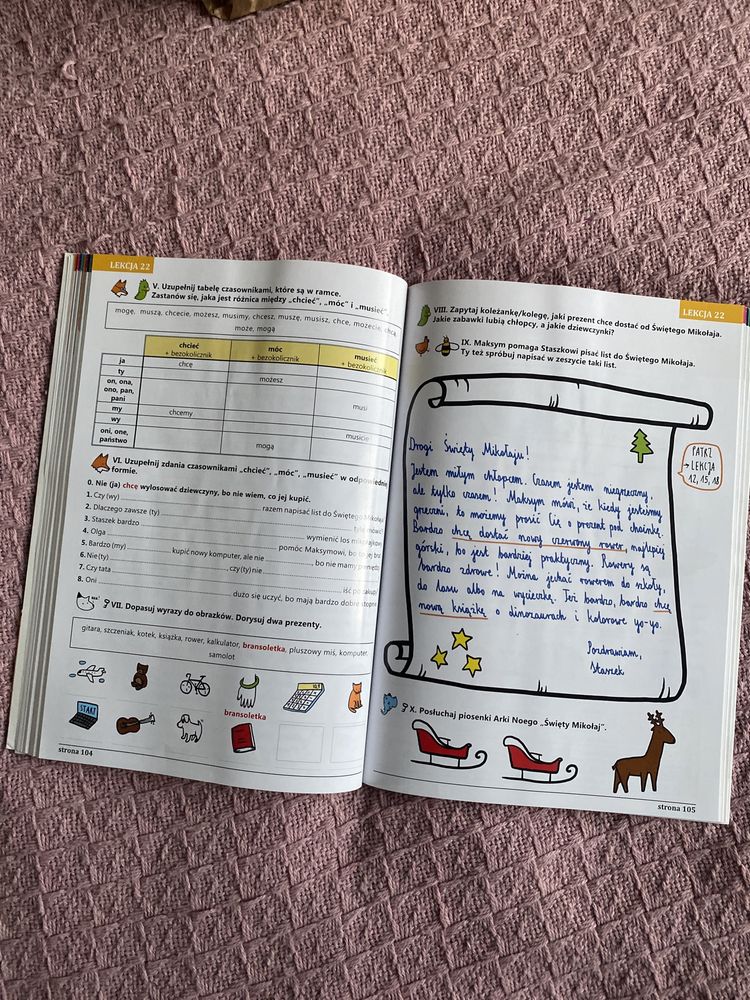 LEKCJA 22
V. Uzupełnij tabelę czasownikami, które są w ramce.
Zastanów się, jaka jest różnica między „chcieć”, „móc” i „musieć”.
mogę, muszą, chcecie, możesz, musimy, chcesz, muszę, musisz, chce, możecie, chcą,
może, mogą
chcieć móc musieć
+ bezokolicznik + bezokolicznik + bezokolicznik
ja chcę
ty możesz
on, ona,
ono, pan,
pani musi
my chcemy
wy musicie
oni, one,
państwo mogą
VI. Uzupełnij zdania czasownikami „chcieć”, „móc”, „musieć” w odpowiedniej
formie.
0. Nie (ja) chcę wylosować dziewczyny, bo nie wiem, co jej kupić.
1. Czy (wy) razem napisać list do Świętego
2. Dlaczego zawsze (ty)
3. Staszek bardzo wymienić los
4. Olga pomóc Maksymowi, bo to jej brat
5. Bardzo (my) kupić nowy komputer, ale nie
6. Nie (ty) , bo nie mamy
7. Czy tata , czy (ty) nie
8. Oni iść po zakupy
dużo się uczyć, bo mają bardzo dobre
VII. Dopasuj wyrazy do obrazków. Dorysuj dwa prezenty.
gitara, szczeniak, kotek, książka, rower, kalkulator, bransoletka, pluszowy miś, komputer,
samolot
START
bransoletka
strona 104
LEKCJA 22
VIII. Zapytaj koleżankę/kolegę, jaki prezent chce dostać od Świętego Mikołaja.
Jakie zabawki lubią chłopcy, a jakie dziewczynki?
IX. Maksym pomaga Staszkowi pisać list do Świętego Mikołaja.
Ty też spróbuj napisać w zeszycie taki list.
Drogi Święty Mikołaju!
Jestem miłym chłopcem. Czasem jestem niegrzeczny,
ale tylko czasem! Maksym mówi, że kiedy jesteśmy
grzeczni, to możemy prosić Cię o prezent pod choinkę.
Bardzo chcę dostać nowy czerwony rower, najlepiej
górski, bo jest bardziej praktyczny. Rowery są
bardzo zdrowe! Można jechać rowerem do szkoły,
do lasu albo na wycieczkę. Też bardzo, bardzo chcę
nową książkę o dinozaurach i kolorowe yo-yo.
Pozdrawiam,
Staszek
PATRZ
→ LEKCJA
12, 15, 18
X. Posłuchaj piosenki Arki Noego „Święty Mikołaj”.
strona 105